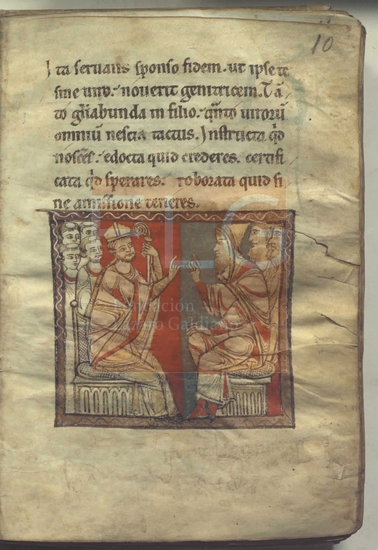 10
Ita servans sponso fidem. ut ipse te
sine viro. noverit genitricem. Tā
to gr̄abunda in filio. q̄nto viroru
omniū nescia tactus. Instructa q̄d
nosceres. edocta quid crederes. certifi
cata q̄d sperares. roborata quid si
ne amissione teneres.
Fundación
Lázaro Galdiano